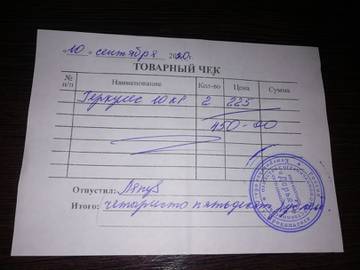 «10» сентября 2020г.
ТОВАРНЫЙ ЧЕК
№ п/п Наименование Кол-во Цена Сумма
Геркулес 10кг 2 225
450-00
Отпустил:
Итого: четыреста пятьдесят руб 00коп